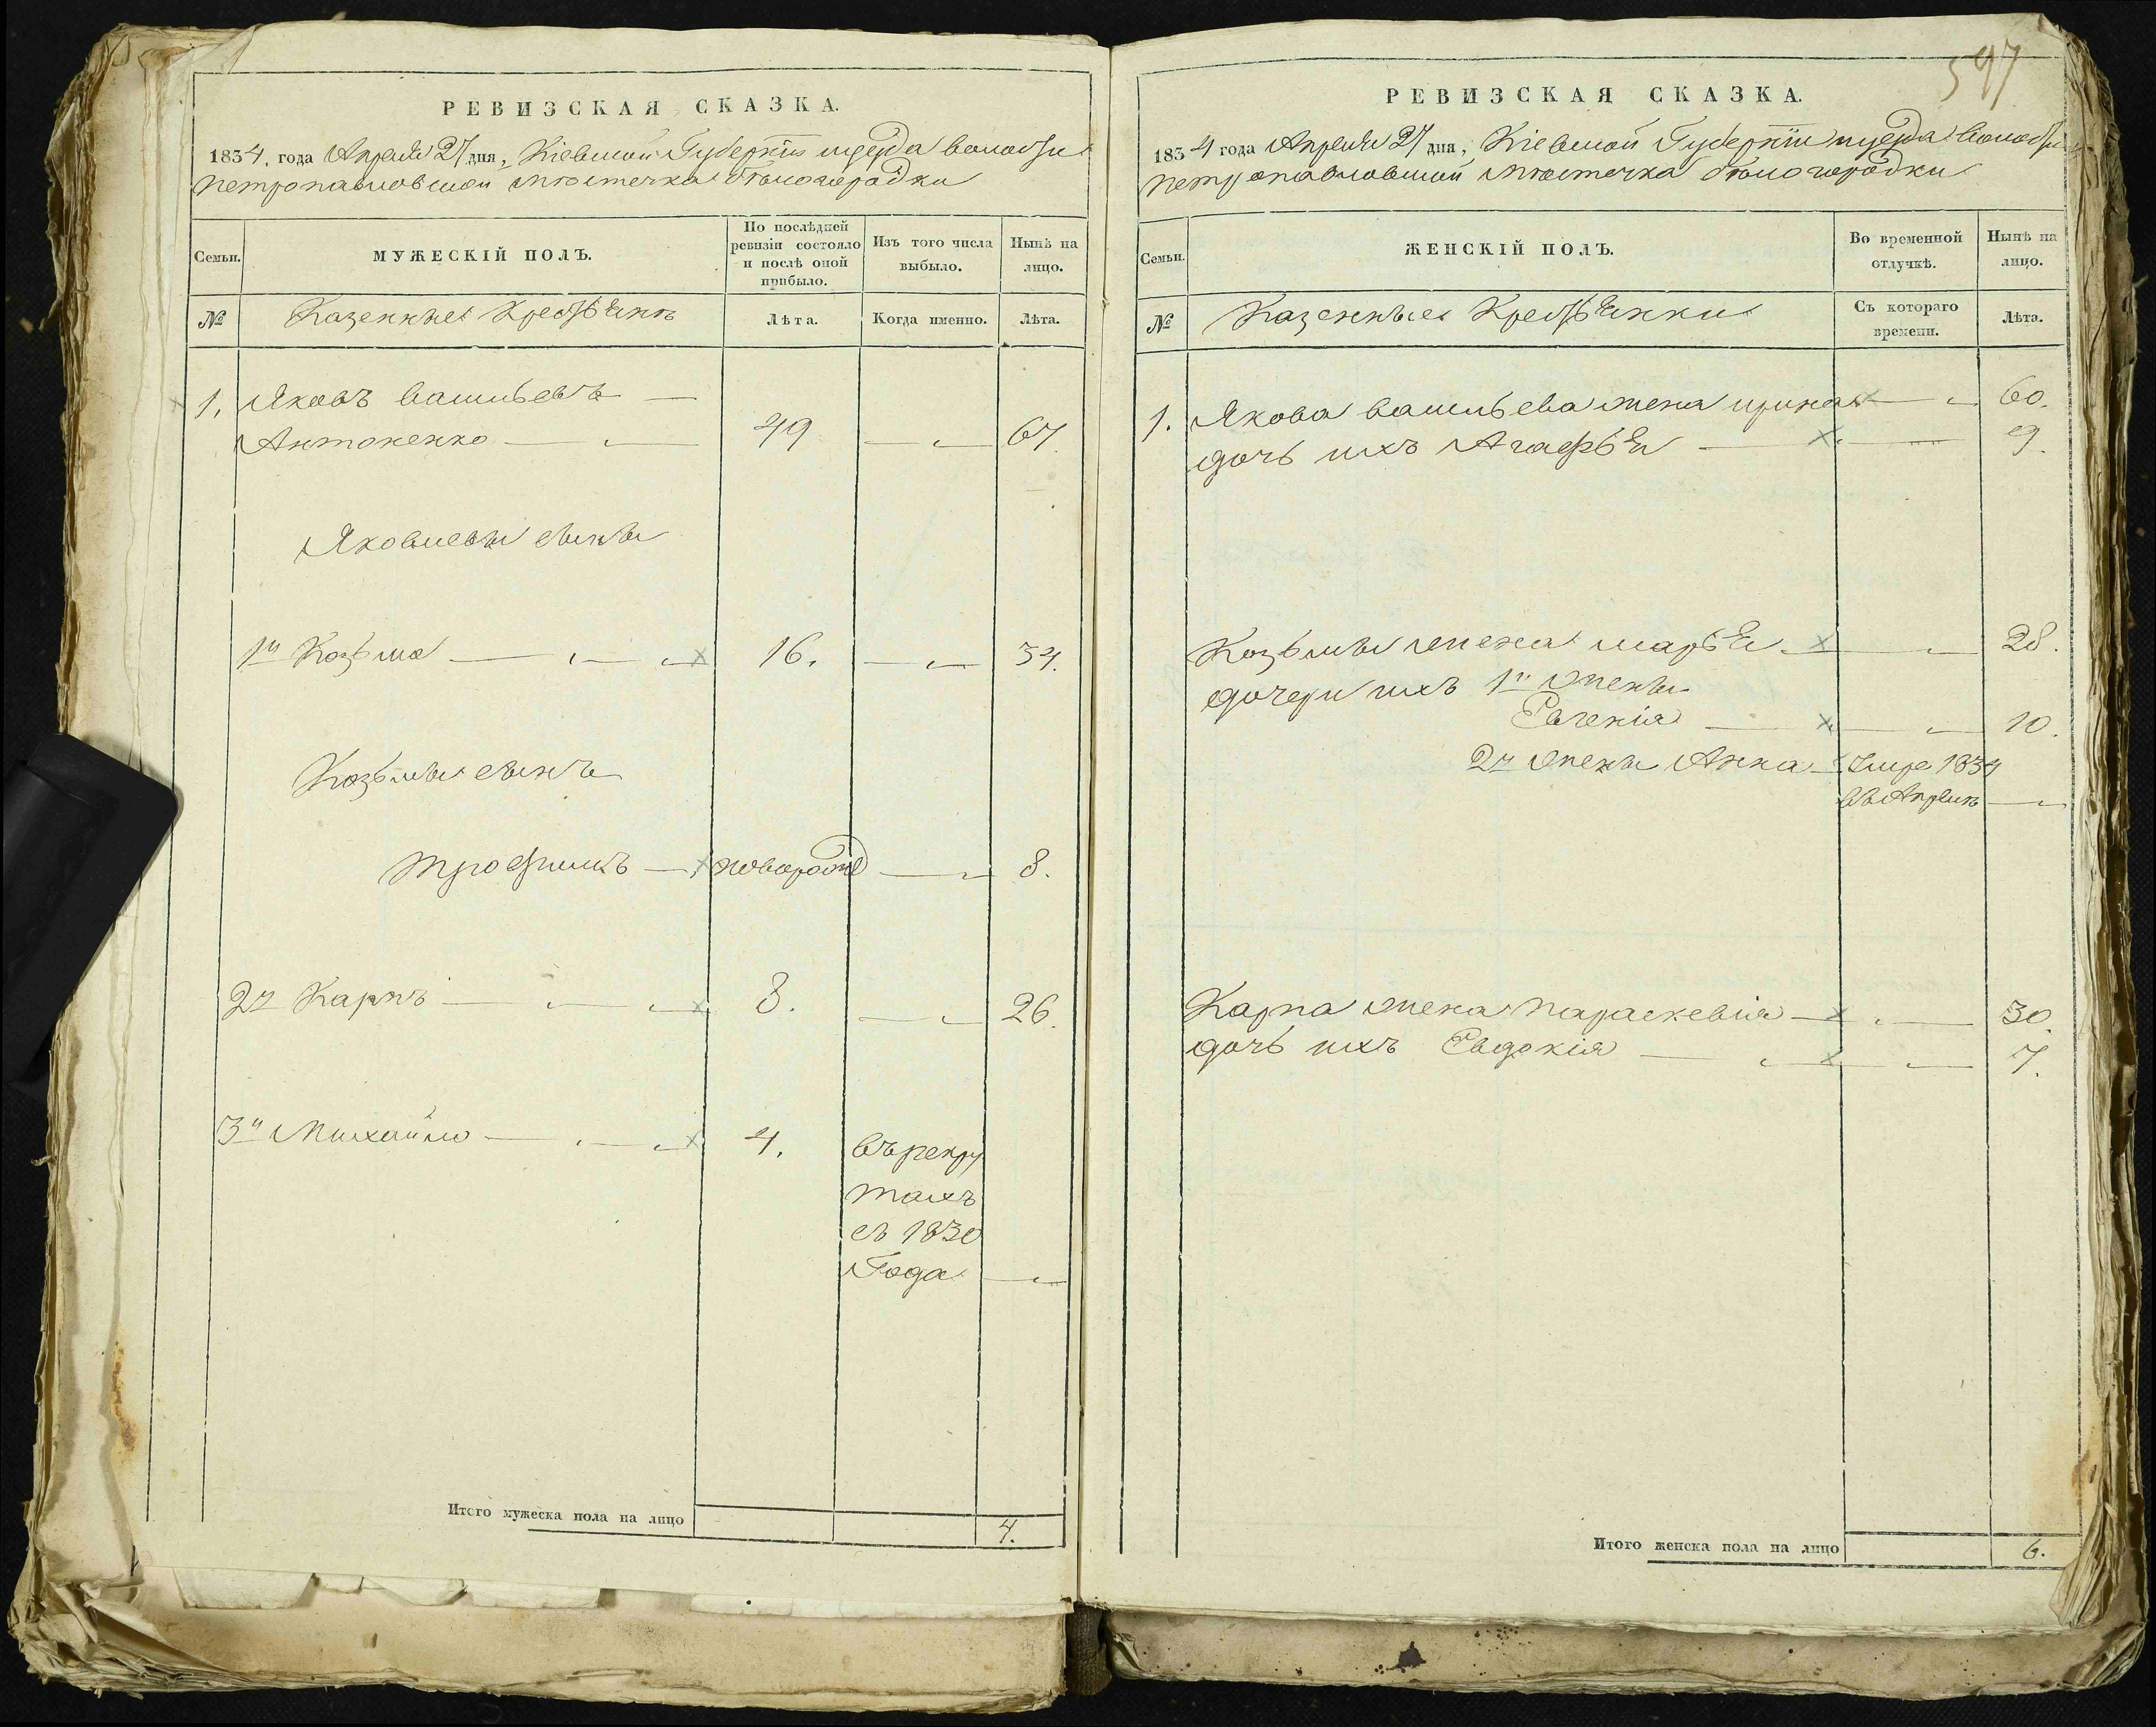 597
РЕВИЗСКАЯ СКАЗКА.
1834, года Апреля 27 дня, Кіевской Губерніи и уезда волости
петропавловской местечка белогородки
Семьи.
МУЖЕСКІЙ ПОЛЪ.
По послѣдней
ревизіи состояло
и послѣ оной
прибыло.
Изъ того числа
выбыло.
Нынѣ на
лицо.
№
Казенные Крестьяне
Лѣта.
Когда именно.
Лѣта.
1. Яковъ васильевъ
Антоненко 49 67.
Яковлевы сыны
1й Козьма 16. 34.
Козьмы сынъ
трофимъ новорожд 8.
2й Карпъ 8. 26.
3й Михайло 4. въ рекру
тахъ
съ 1830
Года
Итого мужеска пола на лицо 4.
РЕВИЗСКАЯ СКАЗКА.
1834 года Апреля 27 дня, Кіевской Губерніи и уезда волости
петропавловской местечка белогородки
Семьи.
ЖЕНСКІЙ ПОЛЪ.
Во временной
отлучкѣ.
Нынѣ на
лицо.
№
Казенные Крестьянки
Съ котораго
времени.
Лѣта.
1. Якова васильева жена ирина 60.
дочь ихъ Агафья 9.
Козьмы жена марья 28.
дочери ихъ 1й жены
Евгенія 10.
2й жены Анна умре 1834
въ Апреле
Карпа жена параскевія 30.
дочь ихъ Евдокія 7.
Итого женска пола на лицо 6.